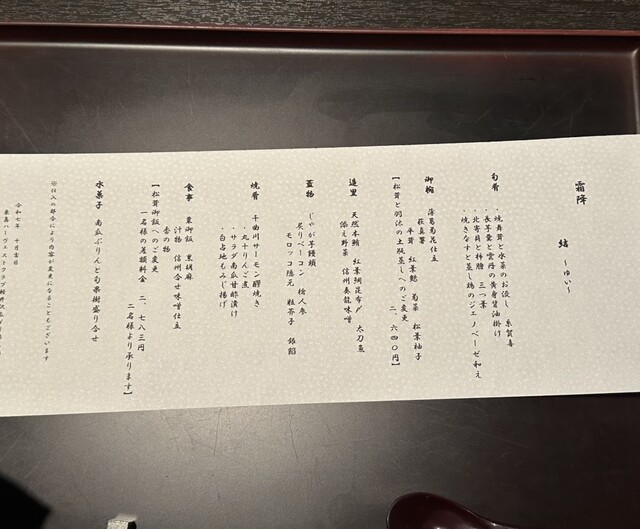 霜降
結 〜ゆい〜
旬肴
・焼舞茸と水菜のお浸し 糸賀喜
・長芋羹と雲丹の黄身醤油掛け
・北寄貝と柿膾 三つ葉
・焼きなすと蒸し鶏のジェノベーゼ和え
御椀
薄葛菊花仕立
萩真薯
平茸 紅葉麩 菊菜 松葉柚子
【松茸と羽沢の土瓶蒸しへのご変更 二、六四〇円】
造里
天然本鮪 紅葉鯛昆布〆 太刀魚
添え野菜 信州奏龍味噌
蓋物
じゃが芋饅頭
炙りベーコン 桧人参
モロッコ隠元 粒芥子 銀餡
焼肴
千曲川サーモン醪焼き
・丸十りんご煮
・サラダ南瓜甘酢漬け
・白占地もみじ揚げ
食事
栗御飯 黒胡麻
汁物 信州合せ味噌仕立
香の物
【松茸御飯へのご変更
一名様の差額料金 二、七八三円
二名様より承ります】
水菓子
南瓜ぷりんと旬果樹盛り合せ
※仕入の都合により内容が変更になることもございます
令和七年 十月吉日
東急ハーヴェストクラブ軽井沢